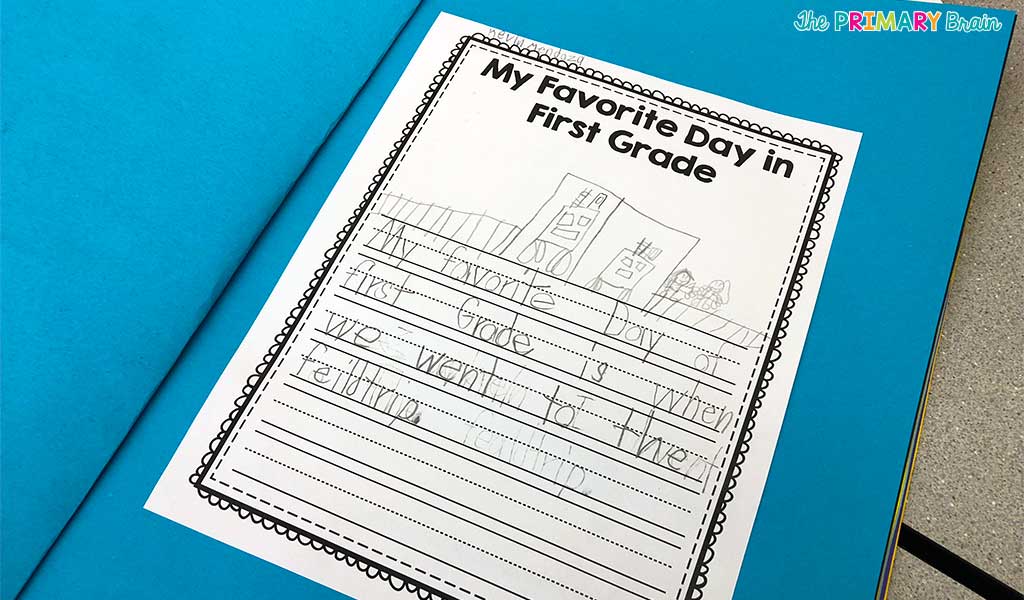 The PRIMARY Brain
My Favorite Day in
First Grade
My favorite Day of
first Grade is when
we went to the
feildtrip.